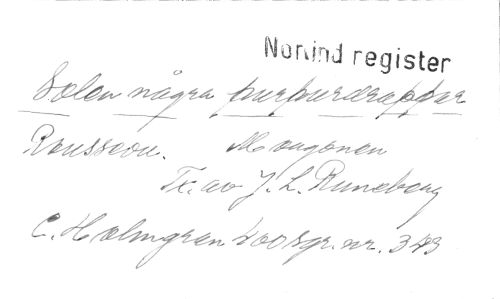 Nordind register
Solen några purpurdroppar
Rousseau. Morgonen
Tx. av J. L. Runeberg
C. Holmgren 400 sgr. nr. 343